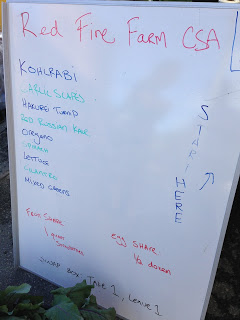 Red Fire Farm CSA
KOHLRABI
GARLIC SCAPES
HAKUREI TURNIP
RED RUSSIAN KALE
Oregano
SPINACH
LETTUCE
CILANTRO
MIXED GREENS
START HERE
FRUIT SHARE
1 quart
Strawberries
egg SHARE
1/2 dozen
SWAP BOX: TAKE 1, LEAVE 1